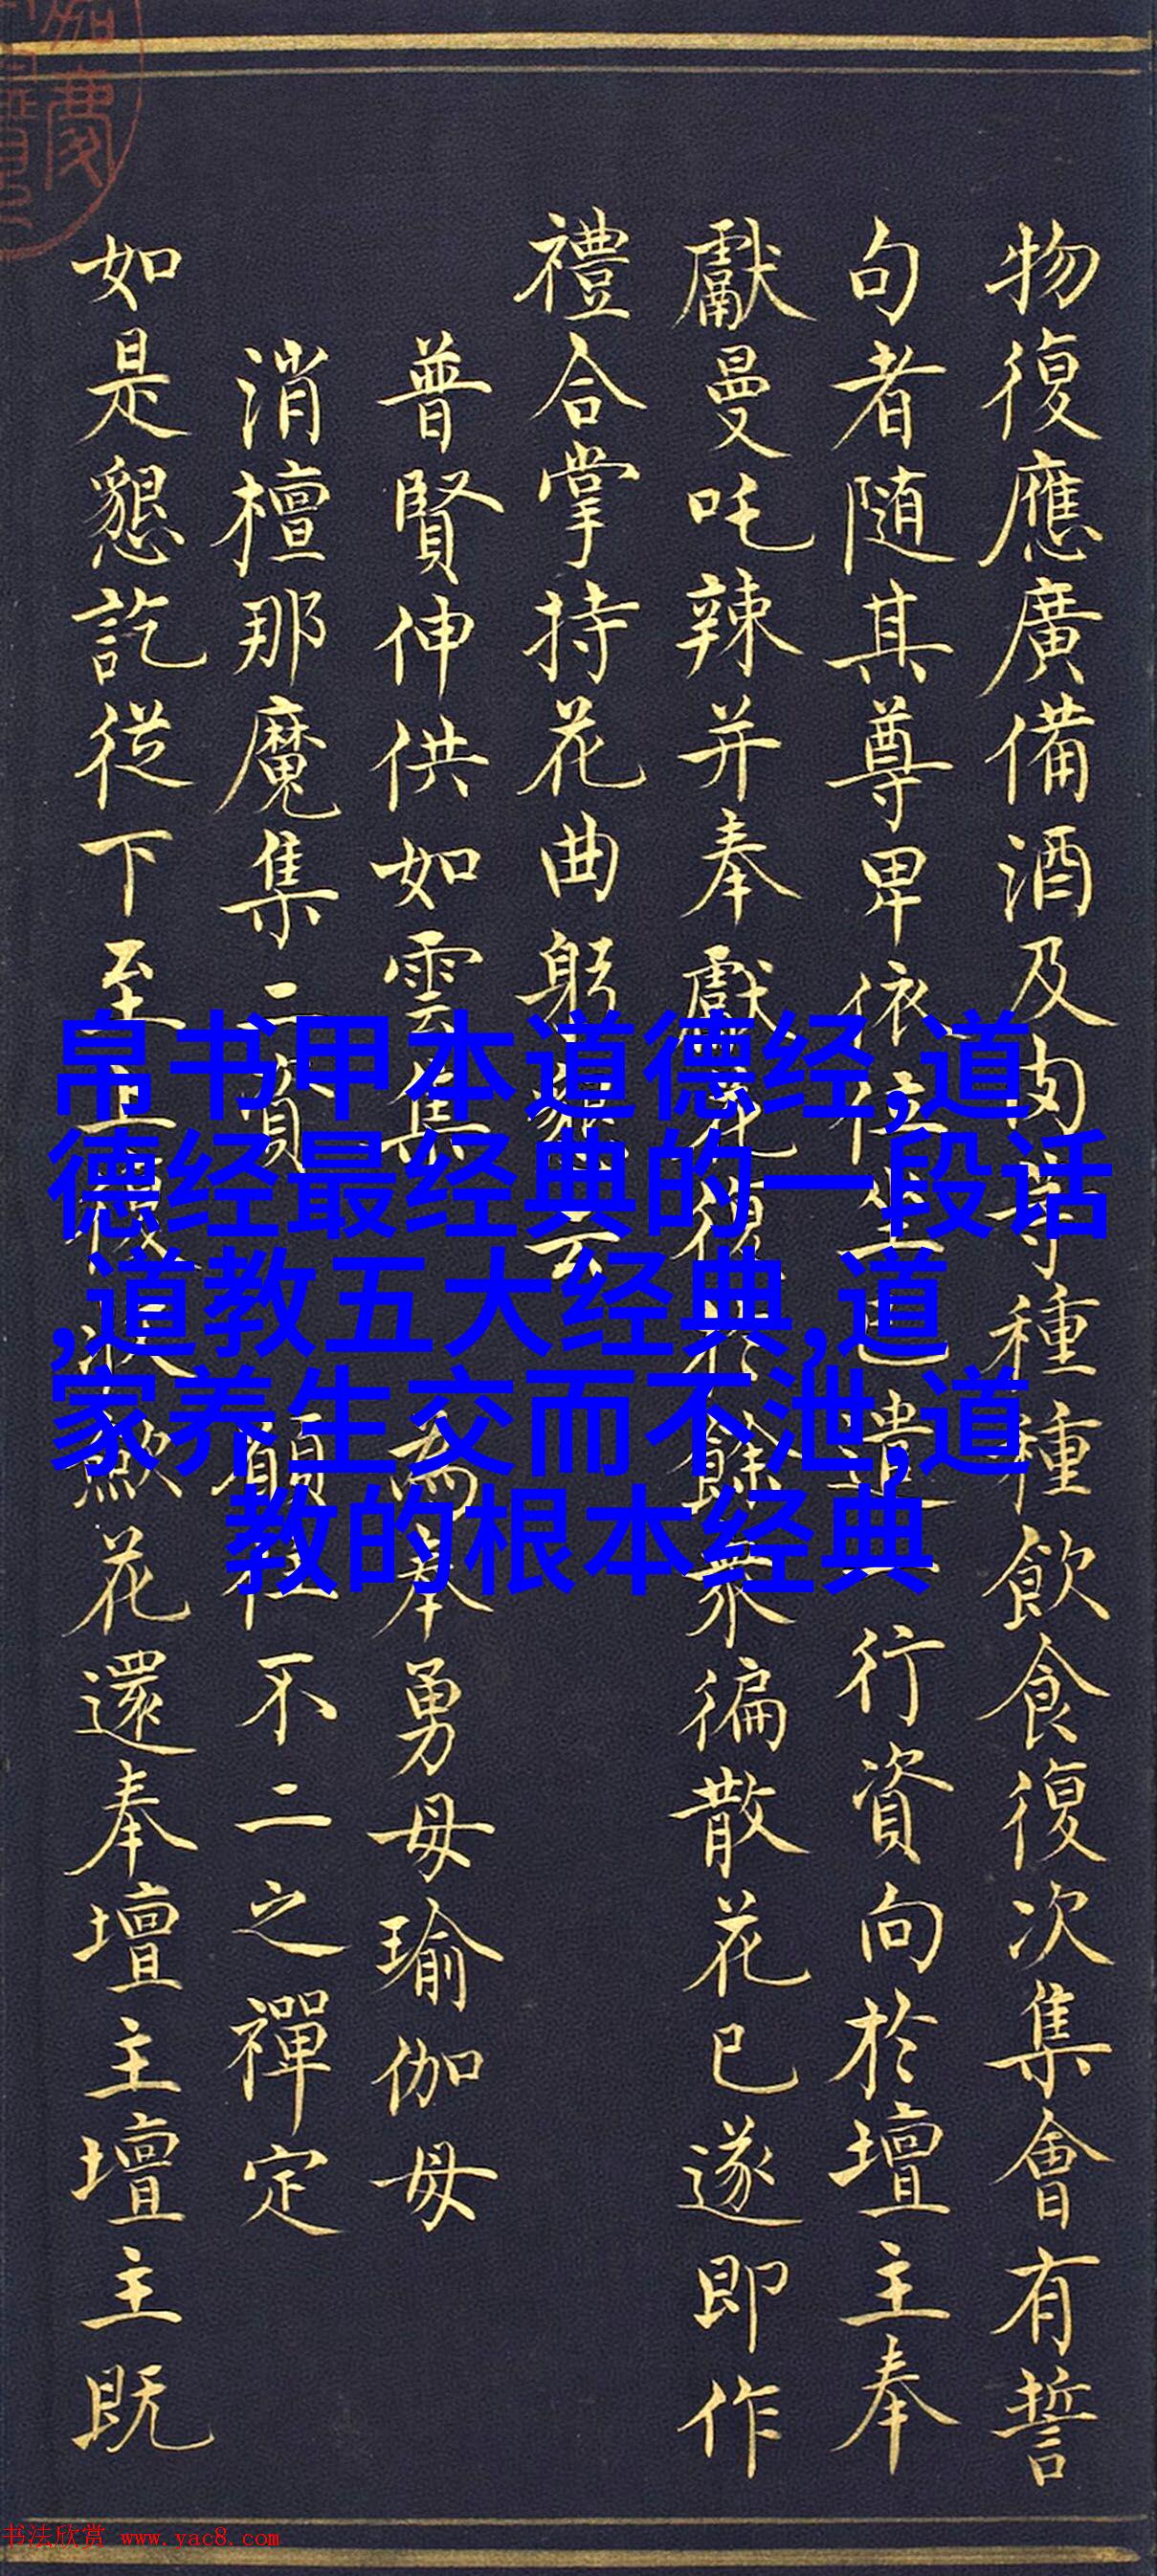 物復應廣備酒及肉等種種飲食復次集會有誓
句者随其尊卑依位坐已遣一行資向於壇主奉
獻曼吒辣并奉獻花復於餘眾徧散花已遂即作
禮合掌持花曲躬云
普賢伸供如雲集 為奉勇母瑜伽母
消檀那魔集二資 願住不二之禪定
如是懇訖從下至上獻花還奉壇主壇主既
帛书甲本道德经,道
德经最经典的一段话
,道教五大经典,道
家养生交而不泄,道
教的根本经典
书法欣赏 www.yac8.com